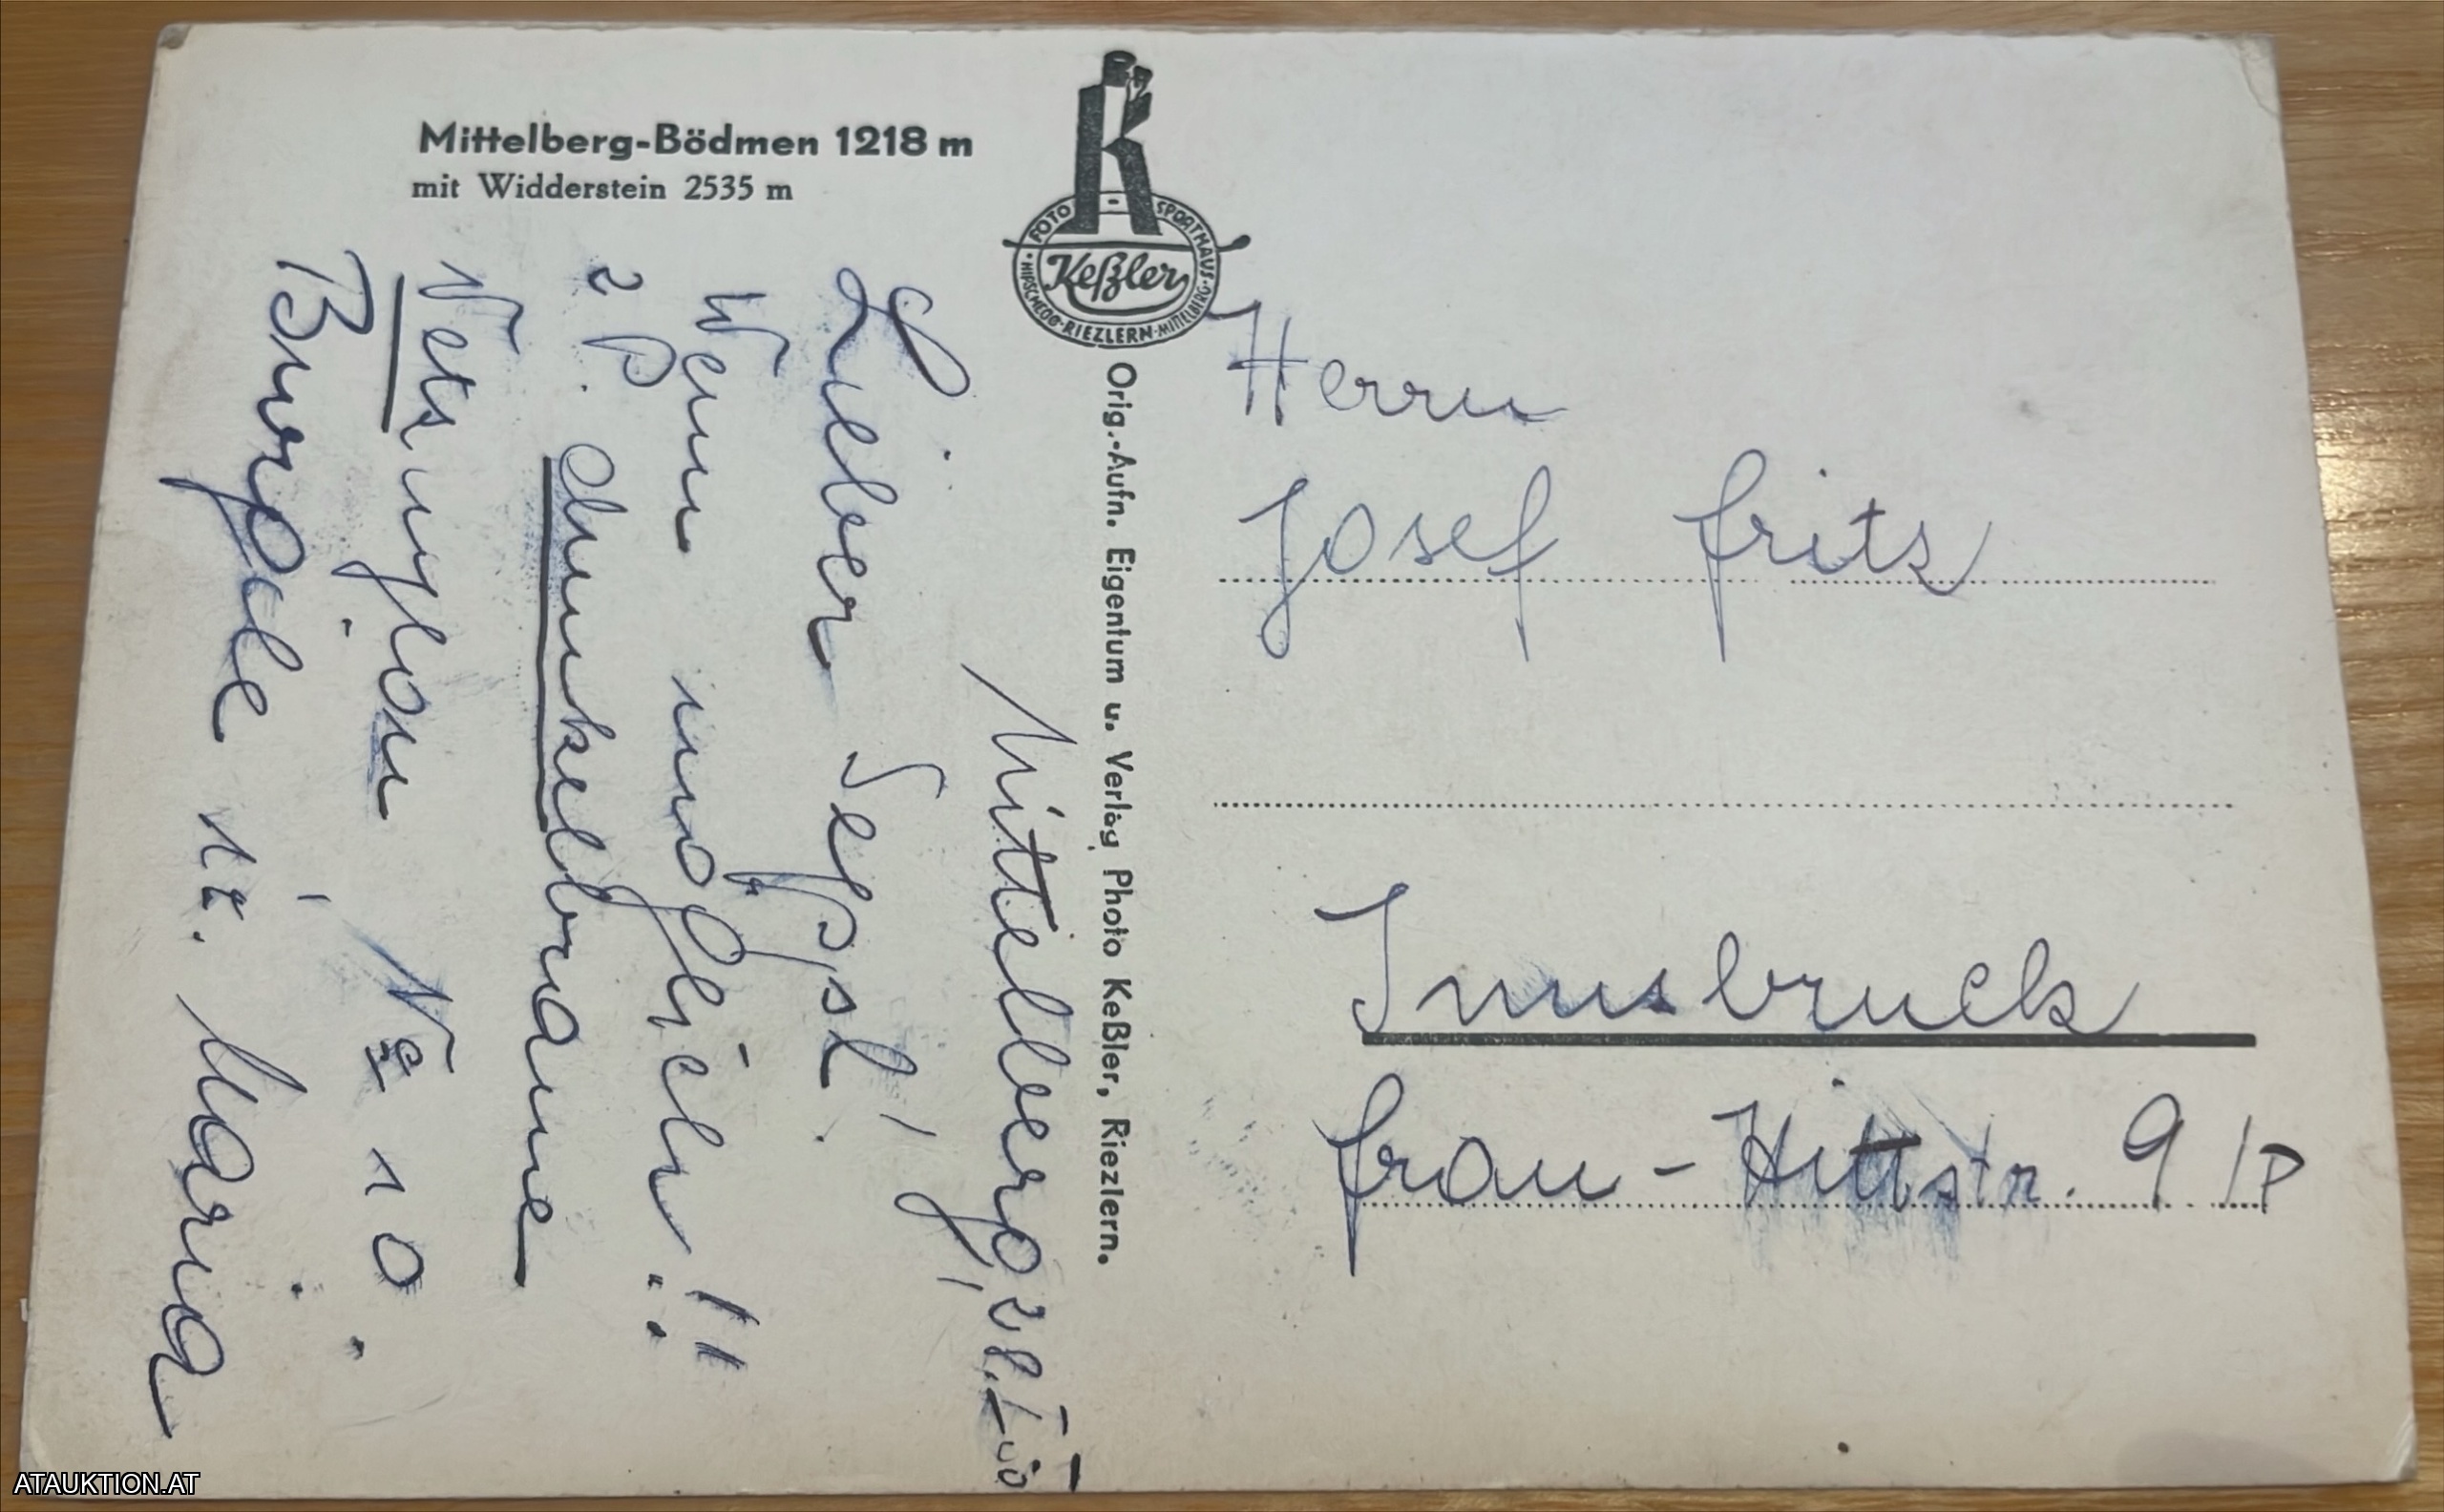 Mittelberg-Bödmen 1218 m
mit Widderstein 2535 m
FOTO SPORTHAUS
Keßler
HIRSCHEGG·RIEZLERN·MITTELBERG
Orig.-Aufn. Eigentum u. Verlag Photo Keßler, Riezlern.
Mittelberg,
Lieber Sepsl!
Wenn möglich!!
2 P. dunkelbraune
Nr 10.
Maria
Herrn
Josef Fritz
Innsbruck
Frau-Hittstr. 9/P
ATAUKTION.AT